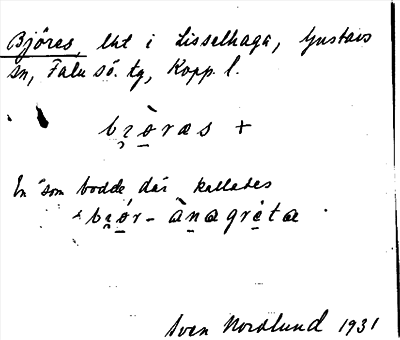 Björes, lht i Lisselhaga, Gustafs
sn, Falu sö. tg, Kopp. l.
bȥò̱ras +
En som bodde där kallades
bȥo̱r-àṉagrèta
Sven Nordlund 1931